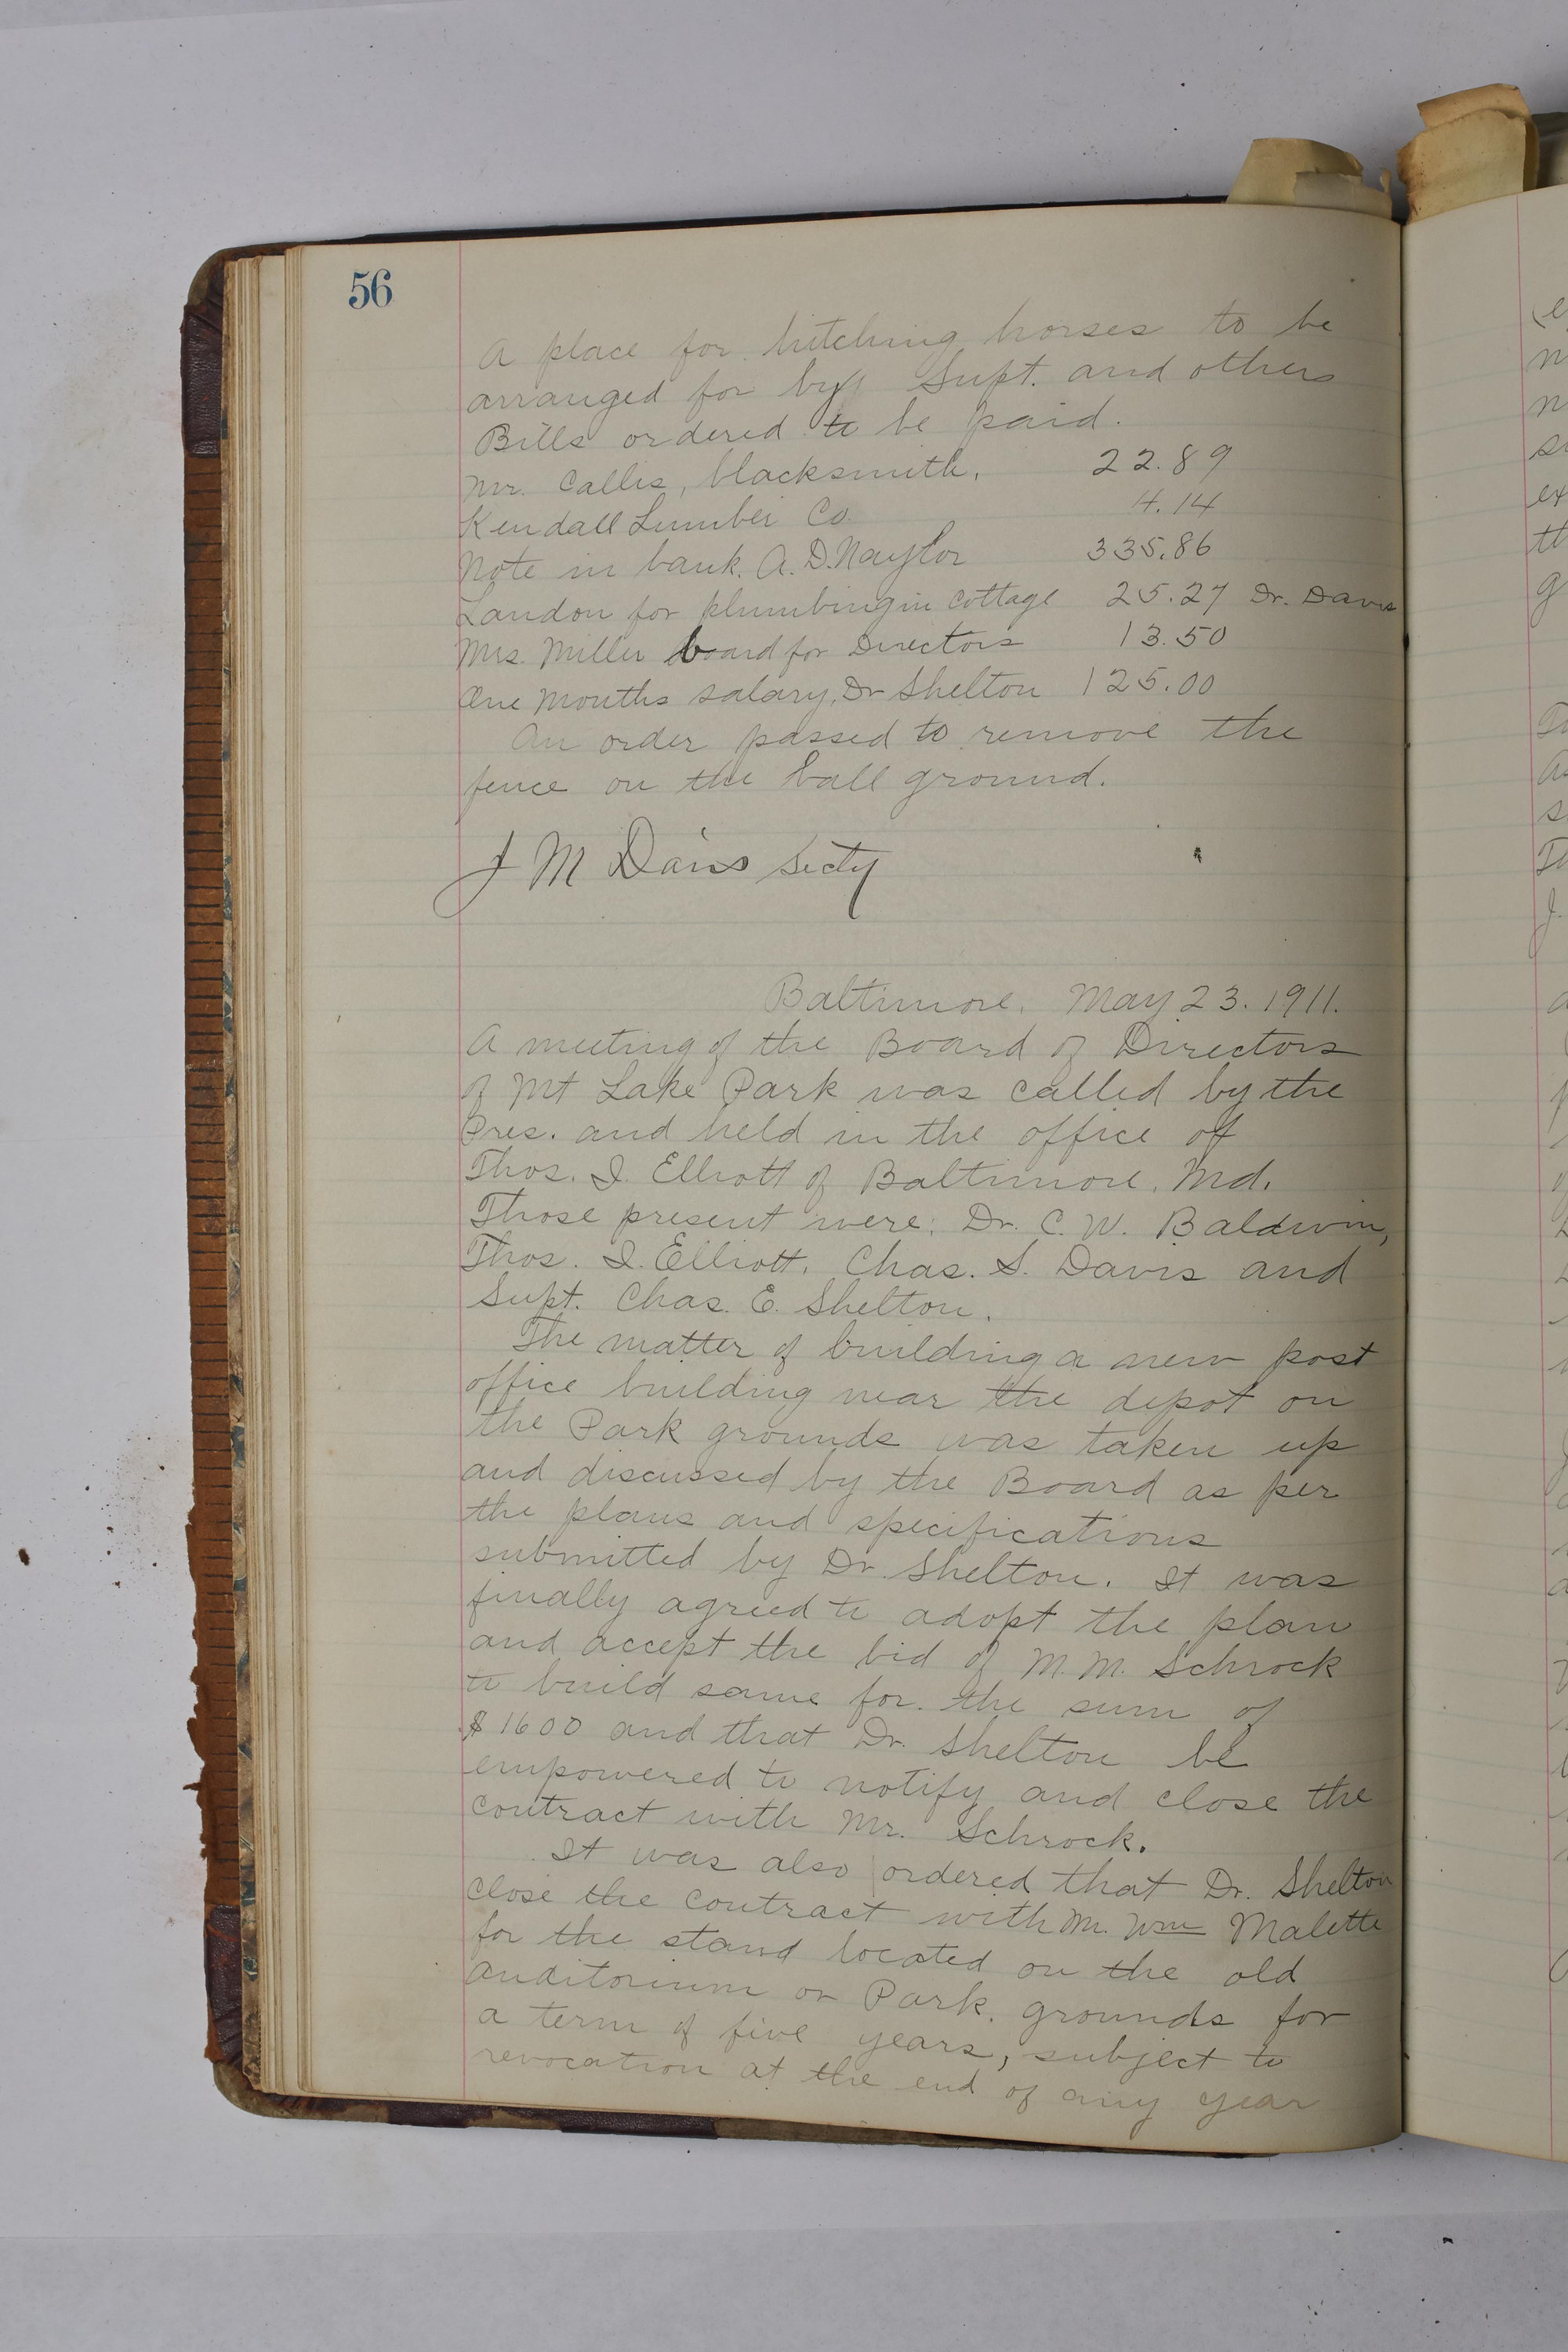 56
A place for hitching horses to be
arranged for by Supt. and others
Bills ordered to be paid.
Mr. Callis, blacksmith, 22.89
Kendall Lumber Co. 4.14
Note in bank. A.D. Naylor 335.86
Landon for plumbing in cottage 25.27 Dr. Davis
Mrs. Miller board for Directors 13.50
One months salary, Dr Shelton 125.00
An order passed to remove the
fence on the ball ground.
J M Davis Secty
Baltimore, May 23. 1911.
A meeting of the Board of Directors
of Mt Lake Park was called by the
Pres. and held in the office of
Thos. I. Elliott of Baltimore, Md.
Those present were: Dr. C. W. Baldwin,
Thos. I. Elliott, Chas. S. Davis and
Supt. Chas. E. Shelton.
The matter of building a new post
office building near the depot on
the Park grounds was taken up
and discussed by the Board as per
the plans and specifications
submitted by Dr. Shelton. It was
finally agreed to adopt the plan
and accept the bid of M. M. Schrock
to build same for the sum of
$1600 and that Dr. Shelton be
empowered to notify and close the
contract with Mr. Schrock.
It was also ordered that Dr. Shelton
close the contract with Mr. Wm Malette
for the stand located on the old
auditorium or Park grounds for
a term of five years, subject to
revocation at the end of any year